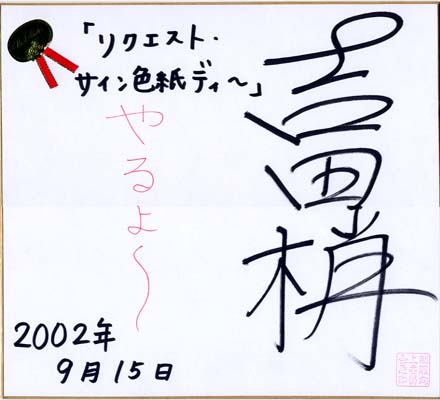 「リクエスト・
サイン色紙ディ〜」
吉田梢
やるよ〜
2002年
9月15日